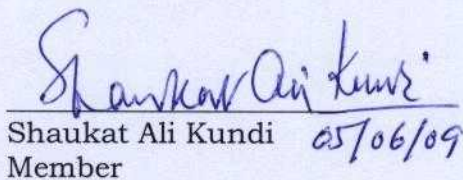 Shaukat Ali Kundi
Shaukat Ali Kundi 05/06/09
Member